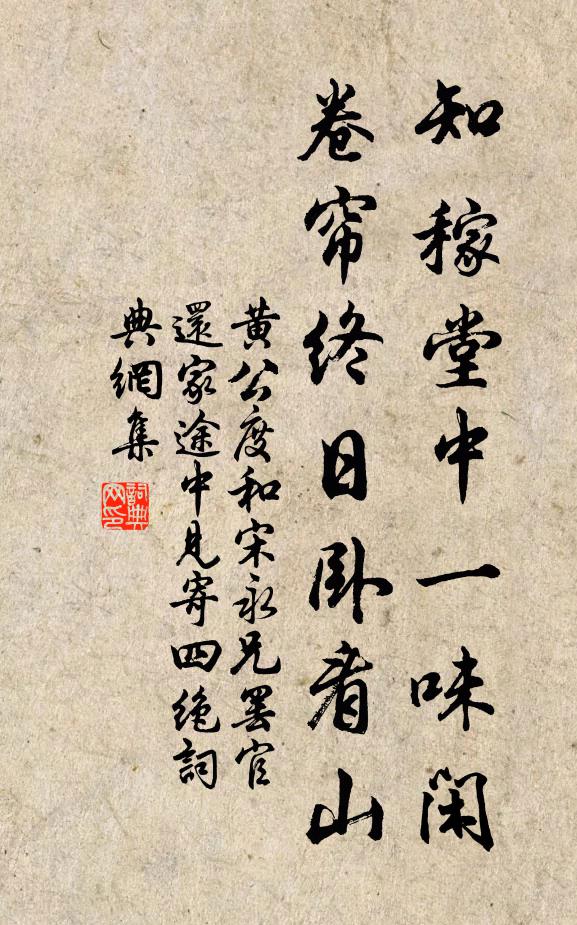 知稼堂中一味閑
卷帘終日臥看山
黄公度和宋永兄罢官
還家途中見寄四绝詞
典網集
詞典网印